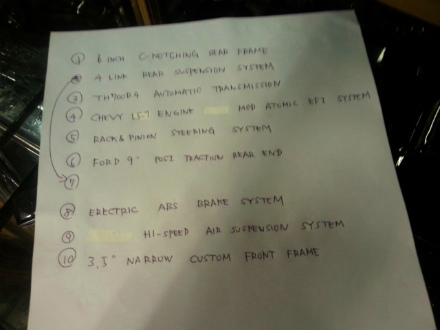 ① 6 INCH C-NOTCHING REAR FRAME
② 4 LINK REAR SUSPENSION SYSTEM
③ TH700R4 AUTOMATIC TRANSMISSION
④ CHEVY ENGINE MOD ATOMIC EFI SYSTEM
⑤ RACK & PINION STEERING SYSTEM
⑥ FORD 9" POSI TRACTION REAR END
⑦
⑧ ERECTRIC ABS BRAKE SYSTEM
⑨ HI-SPEED AIR SUSPENSION SYSTEM
⑩ 3,5" NARROW CUSTOM FRONT FRAME